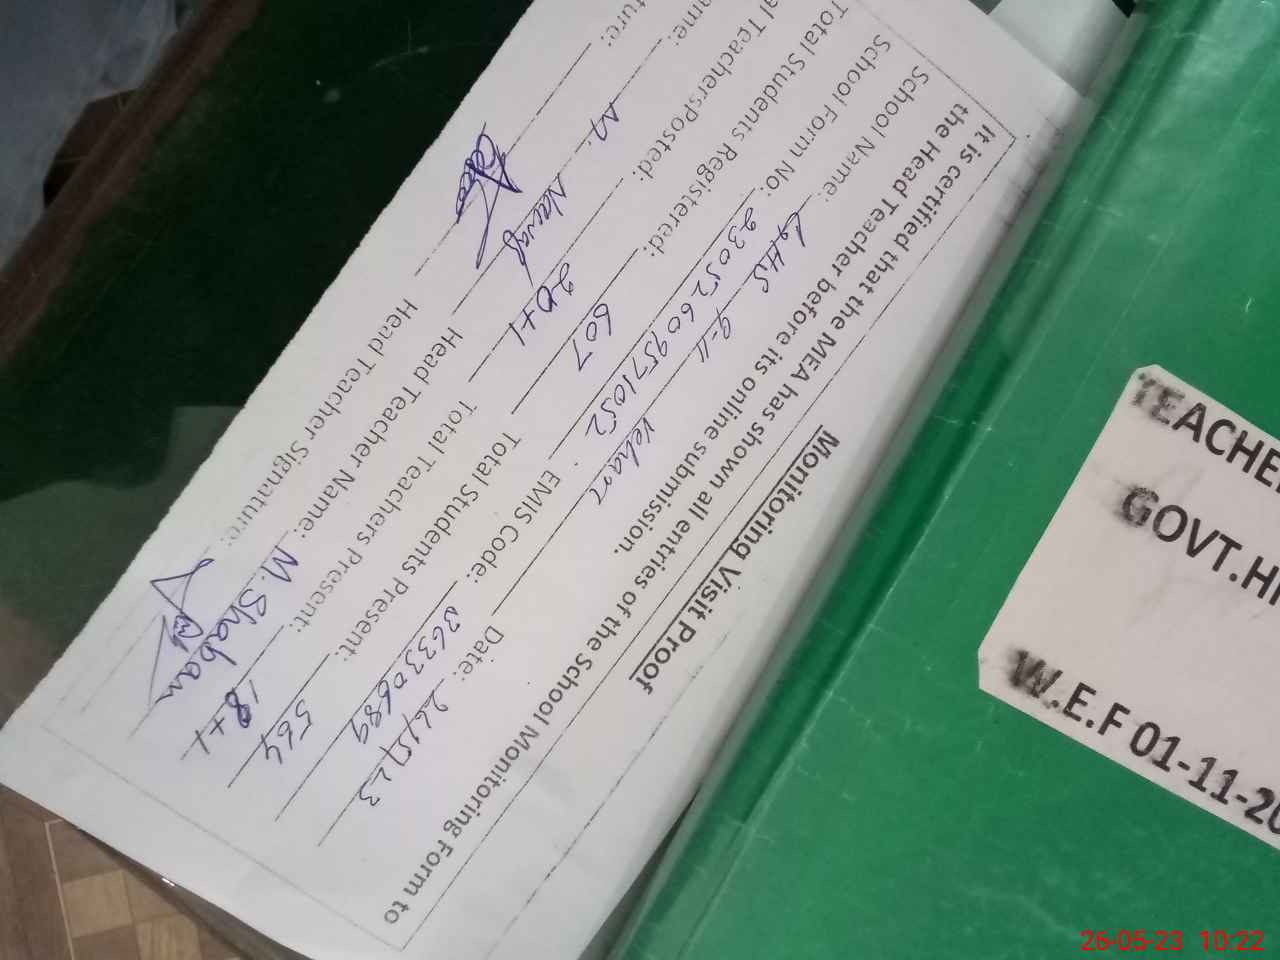 Monitoring Visit Proof
It is certified that the MEA has shown all entries of the School Monitoring Form to
the Head Teacher before its online submission.
School Name: GGHS 9-11 Vehari Date: 26/5/23
School Form No: 23052609571052 EMIS Code: 36330689
Total Students Registered: 607 Total Students Present: 564
al TeachersPosted: 20+1 Total Teachers Present: 18+1
ame: M. Nawaz Head Teacher Name: M. Shaban
ture: Head Teacher Signature:
TEACHE
GOVT.HI
W.E.F 01-11-20
26-05-23 10:22